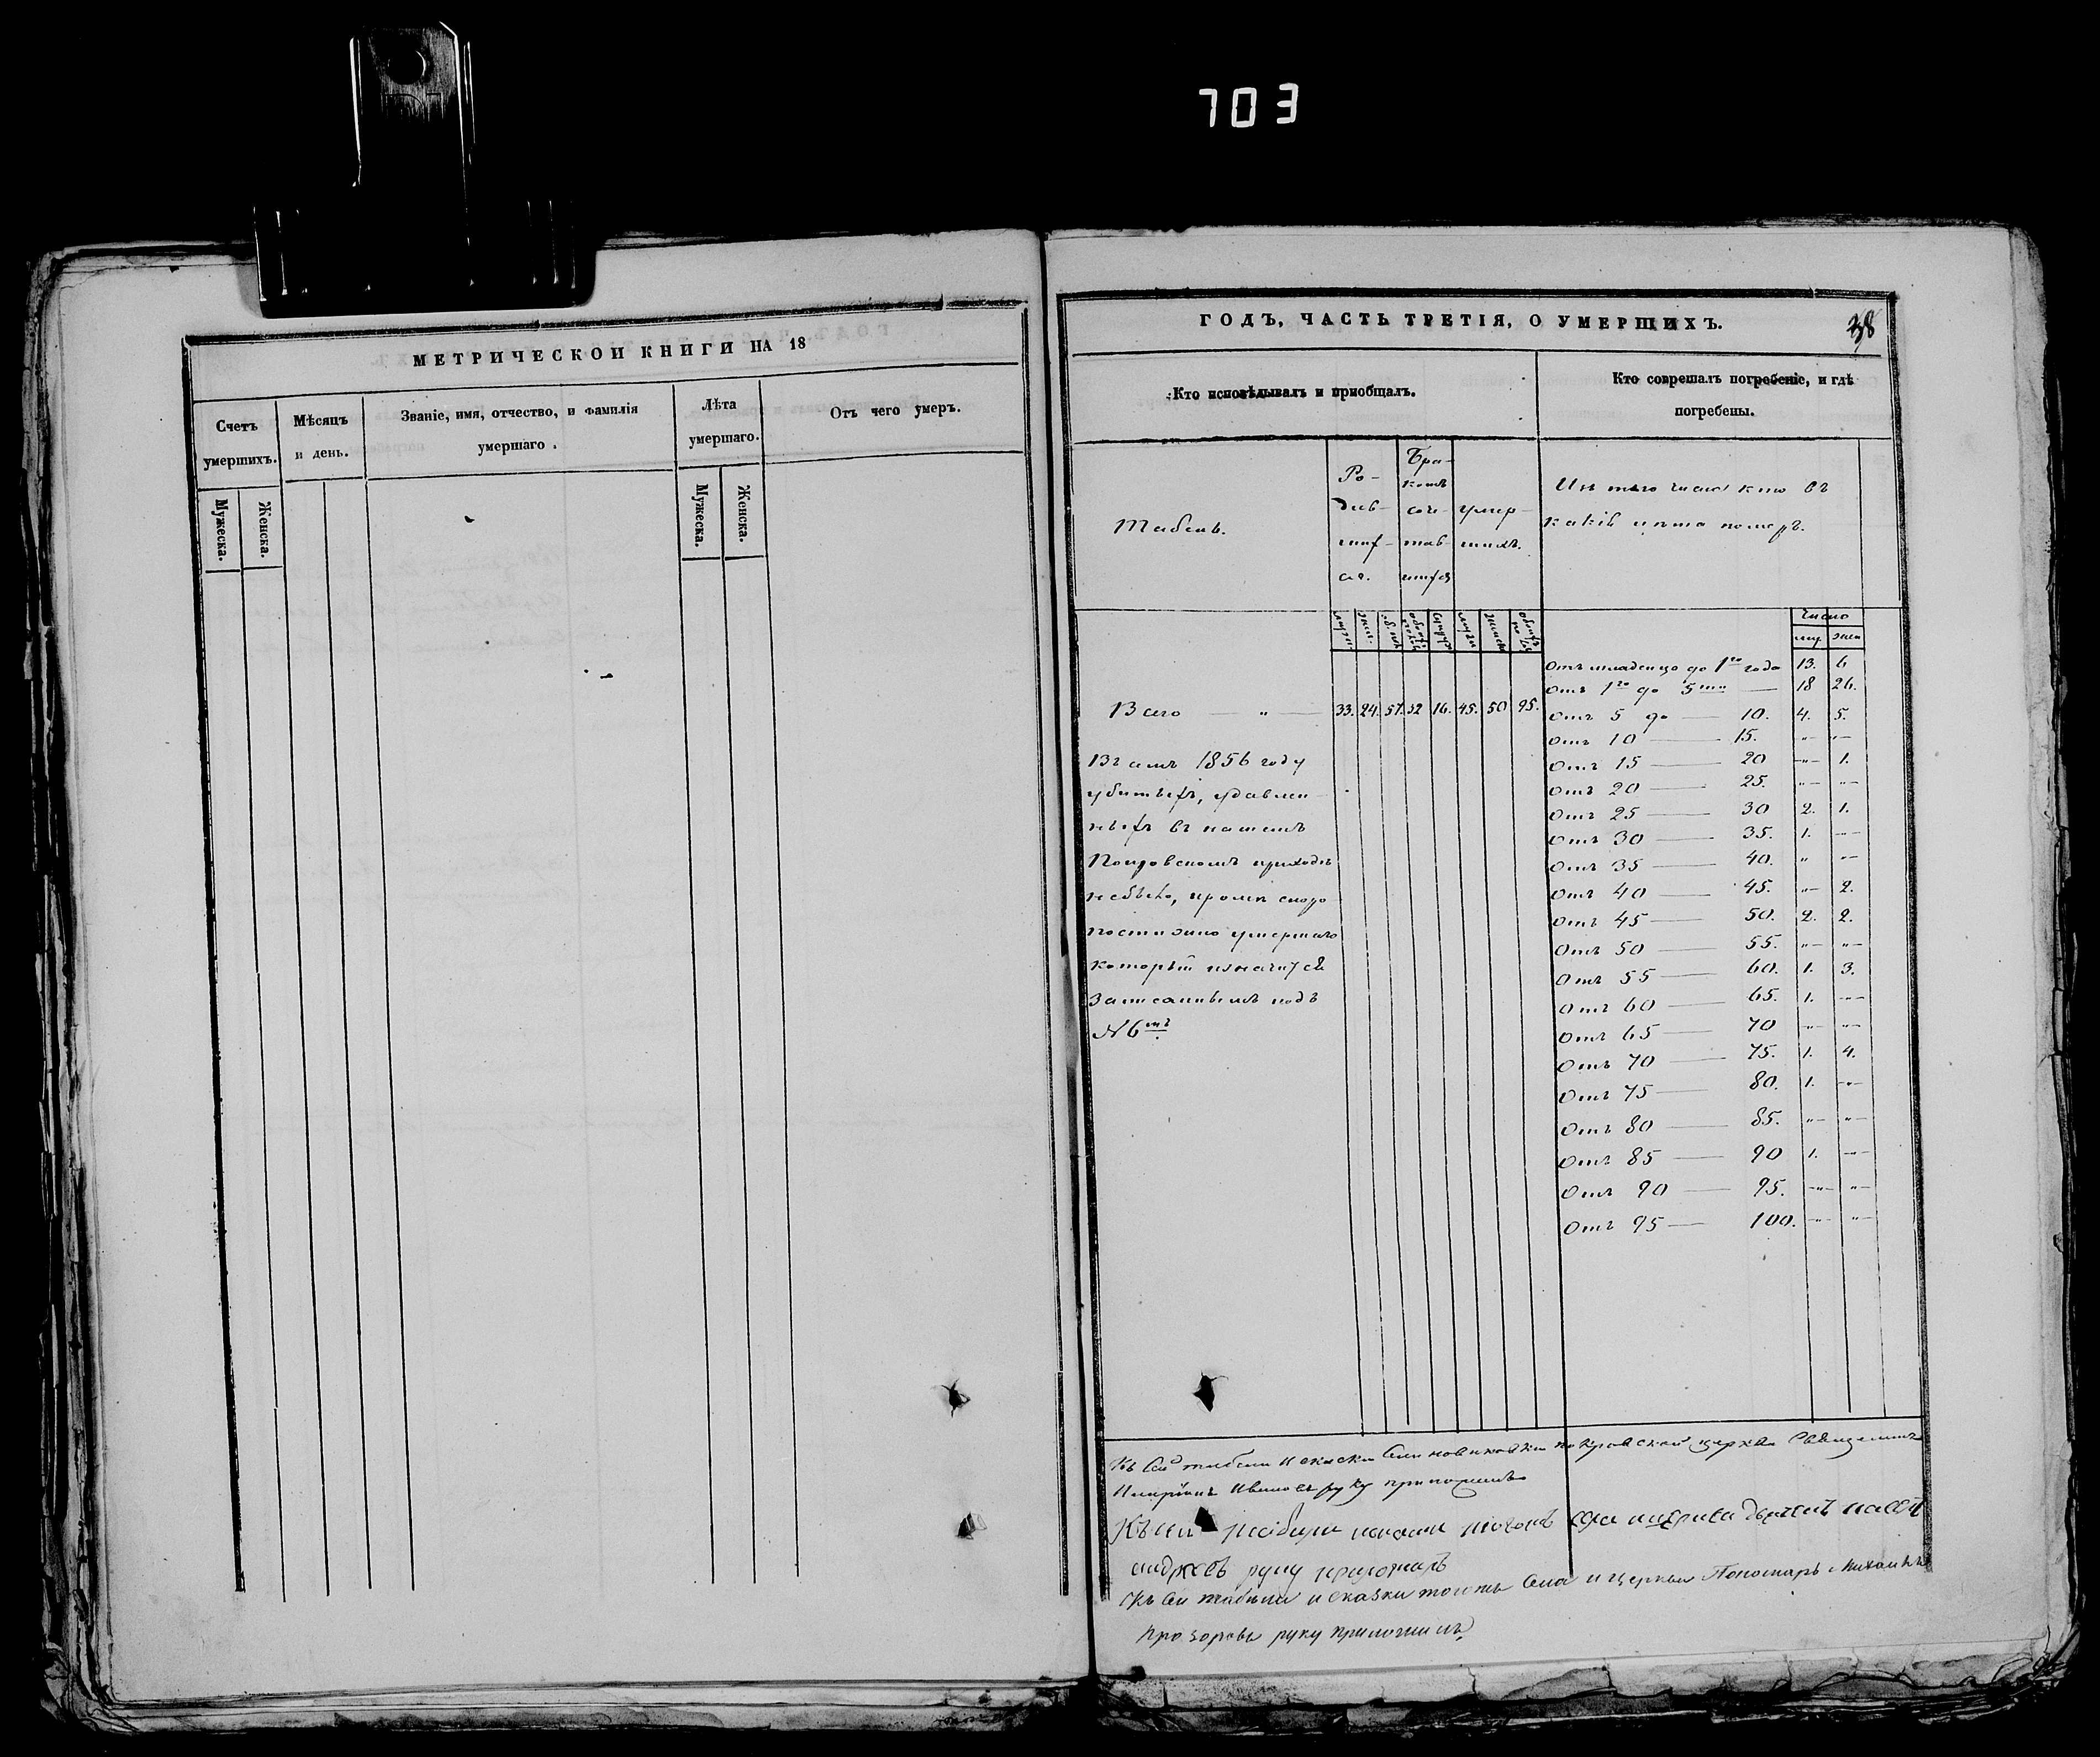 703
МЕТРИЧЕСКОЙ КНИГИ НА 18
Счетъ умершихъ.
Мужеска.
Женска.
Мѣсяцъ и день.
Званіе, имя, отчество, и фамилія
умершаго.
Лѣта
умершаго.
Мужеска.
Женска.
Отъ чего умеръ.
ГОДЪ, ЧАСТЬ ТРЕТІЯ, О УМЕРШИХЪ.
38
Кто исповѣдывалъ и пріобщалъ.
Кто соврешалъ погребеніе, и гдѣ
погребены.
Табель.
Ро-
див-
ших-
ся.
Бра-
комъ
соче-
тав-
шихся
умер-
шихъ.
Изъ того числа кто въ
какія лѣта померъ.
Число
муж. жен
Всего — „ — 33. 24. 57. 32 16. 45. 50 95.
Въ семъ 1856 году
убитыхъ, удавлен
ныхъ въ нашемъ
Покровскомъ приходѣ
небыло, кромѣ скоро
постижно умершаго
который значится
записаннымъ подъ
N 6мъ.
Отъ младенца до 1го года 13. 6
Отъ 1го до 5ти — 18 26.
Отъ 5 до — 10. 4. 5.
Отъ 10 — 15. „ „
Отъ 15 — 20 „ 1.
Отъ 20 — 25. „ „
Отъ 25 — 30 2. 1.
Отъ 30 — 35. 1. „
Отъ 35 — 40. „ „
Отъ 40 — 45. „ 2.
Отъ 45 — 50. 2. 2.
Отъ 50 — 55. „ „
Отъ 55 — 60. 1. 3.
Отъ 60 — 65. 1. „
Отъ 65 — 70 „ „
Отъ 70 — 75. 1. 4.
Отъ 75 — 80. 1. „
Отъ 80 — 85. „ „
Отъ 85 — 90 1. „
Отъ 90 — 95. „ „
Отъ 95 — 100. „ „
Къ сей табели и скаски покровской церкви Священникъ
Ивановъ руку приложилъ
Къ сей табели
руку приложилъ
Къ сей табели и сказки тогожъ села и церкви Пономарь Михаилъ
Прозоровъ руку приложилъ